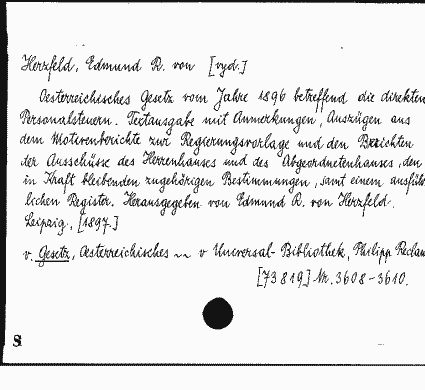 Herzfeld, Edmund R. von [vyd.]
Oesterreichisches Gesetz vom Jahre 1896 betreffend die direkten
Personalsteuern. Textausgabe mit Anmerkungen, Auszügen aus
dem Motivenberichte zur Regierungsvorlage und den Berichten
der Ausschüsse des Herrenhauses und des Abgeordnetenhauses, den
in Kraft bleibenden zugehörigen Bestimmungen, samt einem ausführ
lichen Register. Herausgegeben von Edmund R. von Herzfeld.
Leipzig, [1897.]
v. Gesetz, Oesterreichisches ~~ v Universal-Bibliothek, Philipp Reclam
[73819] Nr. 3608-3610.
8